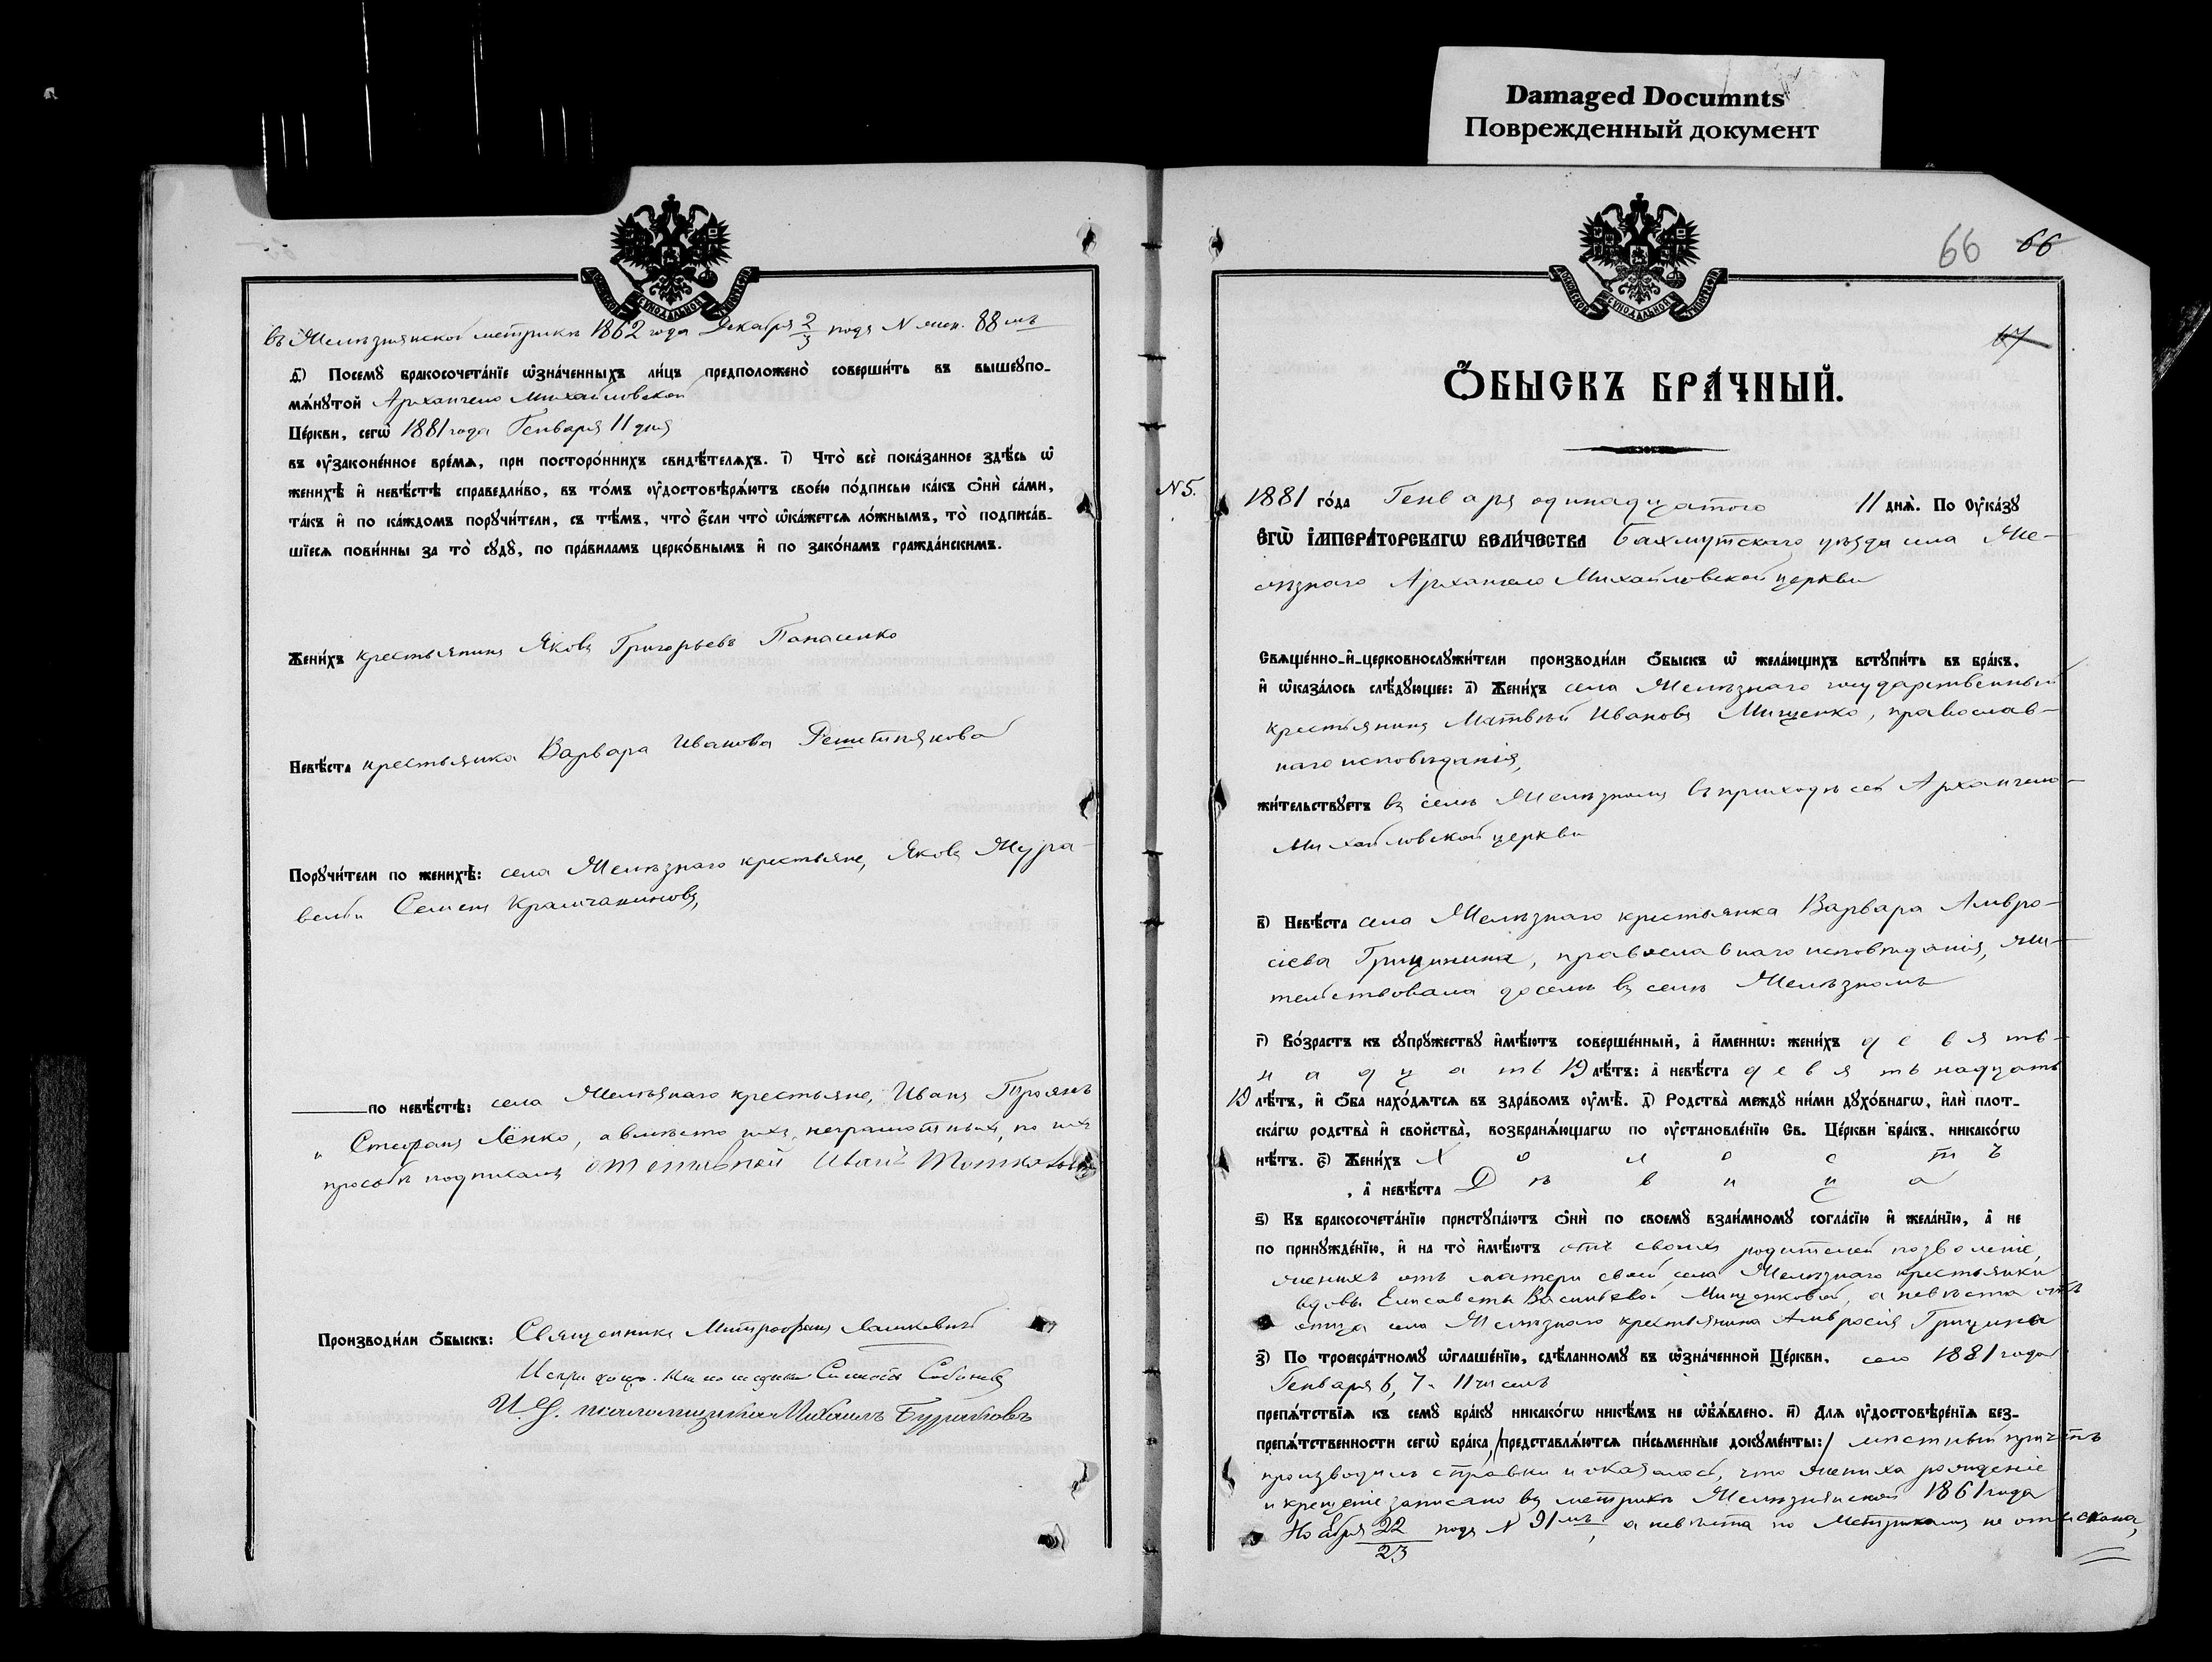 Damaged Documnts
Поврежденный документ
въ Желѣзнянской метрикѣ 1862 года Декабря 2/3 подъ N жен. 88 мъ
д҃) Посемꙋ бракосочета́нїе ѡ҆зна́ченныхъ ли́цъ предположено̀ соверши́ть въ вышеꙋпо-
мѧ́нꙋтой Архангело Михайловской
Це́ркви, сегѡ̀ 1881 года Генваря 11 дня
въ ᲂу҆законе́нное вре́мѧ, при посторо́ннихъ свидѣ́телѧхъ. і҃) Что̀ всѐ пока́занное здѣ́сь ѡ҆
женихѣ̀ и҆ невѣ́стѣ справедли́во, въ то́мъ ᲂу҆достовѣрѧ́ютъ свое́ю по́дписью ка́къ ѻ҆нѝ са́ми,
та́къ и҆ по ка́ждомъ порꙋчи́тели, съ тѣ́мъ, что̀ є҆́сли что̀ ѡ҆ка́жетсѧ ло́жнымъ, то̀ подписа́в-
шїесѧ пови́нны за то̀ сꙋдꙋ̀, по пра́виламъ церко́внымъ и҆ по зако́намъ гражда́нскимъ.
Жени́хъ крестьянинъ Яковъ Григорьевъ Панасенко
Невѣ́ста крестьянка Варвара Иванова Решетнякова
Порꙋчи́тели по женихѣ̀: села Желѣзнаго крестьяне, Яковъ Жура-
вель и Семенъ Крамчаниновъ,
по невѣ́стѣ: села Желѣзнаго крестьяне, Иванъ Троянъ
" Стефанъ Лёнко, а вмѣсто ихъ, неграмотныхъ, по ихъ
просьбѣ подписалъ отставной Иванъ
Производи́ли ѻ҆́быскъ: Священникъ Митрофанъ Лашкевичъ
И. д. псаломщика Михаилъ
66 66
67
Ѻ҆́БЫСКЪ БРА́ЧНЫЙ.
N 5.
1881 го́да Генваря одинадцатого 11 днѧ̀. По Оу҆ка́зꙋ
Є҆ГѠ̀ І҆МПЕРА́ТОРСКАГѠ ВЕЛИ́ЧЕСТВА Бахмутского уѣзда села Же-
лѣзнаго Архангело Михайловской церкви
Свѧще́нно-и҆-церковнослꙋжи́тели производи́ли ѻ҆́быскъ ѡ҆ жела́ющихъ встꙋпи́ть въ бра́къ,
и҆ ѡ҆каза́лось слѣ́дꙋющее: а҃) Жени́хъ села Желѣзнаго государственный
крестьянинъ Матвѣй Ивановъ Мищенко, православ-
наго исповѣданія,
жи́тельствꙋетъ въ селѣ Желѣзномъ въ приходѣ сей Архангело-
Михайловской церкви
в҃) Невѣ́ста села Желѣзнаго крестьянка Варвара Амвро-
сіева Грицинина, православнаго исповѣданія, жи-
тельствовала доселѣ въ селѣ Желѣзномъ
г҃) Во́зрастъ къ сꙋпрꙋ́жествꙋ и҆мѣ́ютъ соверше́нный, а҆ и҆́меннѡ: жени́хъ девять-
надцать 19 лѣ́тъ: а҆ невѣ́ста девятьнадцать
19 лѣ́тъ, и҆ ѻ҆́ба нахо́дѧтсѧ въ здра́вомъ ᲂу҆мѣ̀. д҃) Родства̀ междꙋ ни́ми дꙋхо́внагѡ, и҆лѝ плот-
ска́гѡ родства̀ и҆ сво́йства, возбранѧ́ющагѡ по ᲂу҆становле́нїю Св. Це́ркви бра́къ, никако́гѡ
нѣ́тъ. є҃) Жени́хъ Холостъ
, а҆ невѣ́ста Дѣвица
ѕ҃) Къ бракосочета́нїю пристꙋпа́ютъ ѻ҆нѝ по своемꙋ̀ взаи́мномꙋ согла́сїю и҆ жела́нїю, а҆ не
по принꙋжде́нїю, и҆ на то̀ и҆мѣ́ютъ отъ своихъ родителей позволеніе,
женихъ отъ матери своей села Желѣзнаго крестьянки
вдовы Елисаветы Васильевой Мищенковой, а невѣста отъ
отца села Желѣзнаго крестьянина Амвросія Грицина
з҃) По троекра́тномꙋ ѡ҆глаше́нїю, сдѣ́ланномꙋ въ ѡ҆зна́ченной Це́ркви, сего 1881 года
Генваря 6, 7 и 11 чиселъ
препѧ́тствїѧ къ семꙋ̀ бра́кꙋ никако́гѡ никѣ́мъ не ѡ҆б̾ѧ́влено. и҃) Длѧ ᲂу҆достовѣре́нїѧ без-
препѧ́тственности сегѡ̀ бра́ка, /представлѧ́ются пи́сьменные докꙋме́нты:/ мѣстный причтъ
производилъ справки и оказалось, что жениха рожденіе
и крещеніе записано въ метрикѣ Желѣзнянской 1861 года
Ноября 22/23 подъ N 91 мъ, а невѣста по метрикамъ не отыскана,